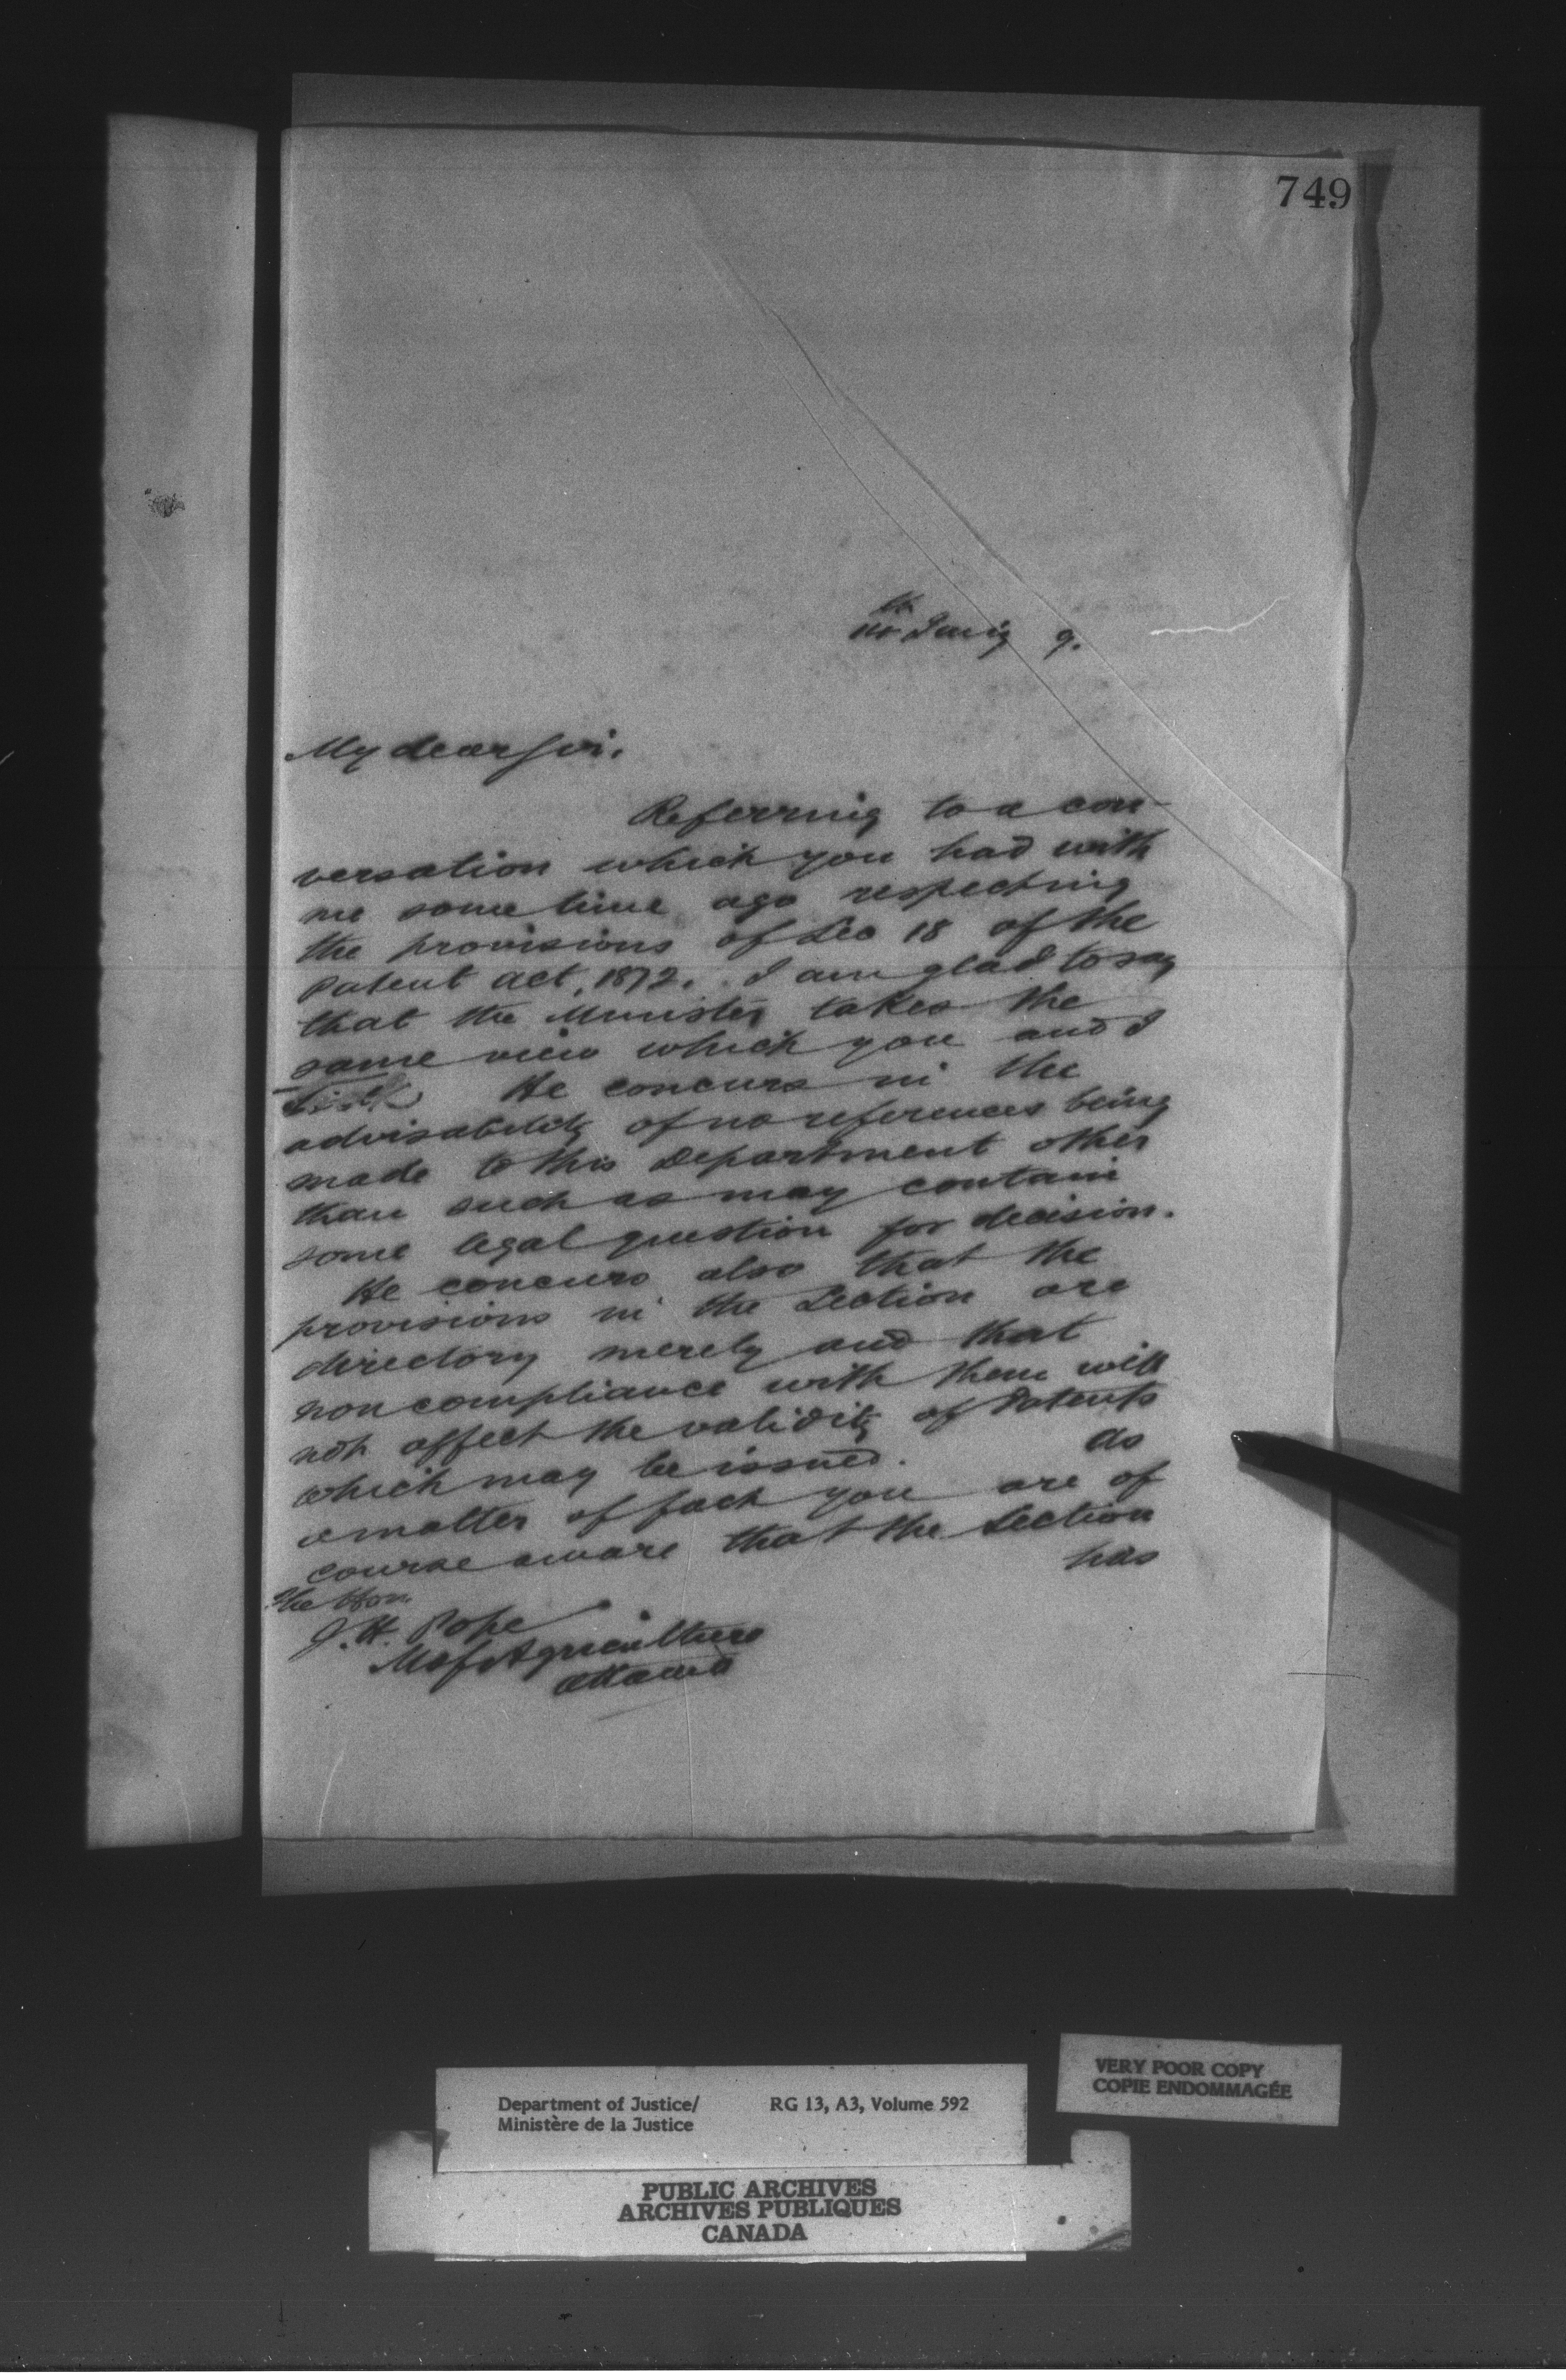 749
th
9.
My dear Sir.
Referring to a con-
versation which you had with
me some time ago respecting
the provisions of Sec 18 of the
Patent Act, 1872. I am glad to say
that the Minister takes the
same view which you and I
He concurs in the
advisability of no references being
made to this Department other
than such as may contain
some legal question for decision.
He concurs also that the
provisions in the Section are
directory merely and that
non compliance with them will
not affect the validity of Patents
which may be issued. As
a matter of fact you are of
course aware that the Section
has
The Hon.
J. H. Pope
M of Agriculture
Ottawa
Department of Justice/ RG 13, A3, Volume 592
Ministère de la Justice
VERY POOR COPY
COPIE ENDOMMAGÉE
PUBLIC ARCHIVES
ARCHIVES PUBLIQUES
CANADA